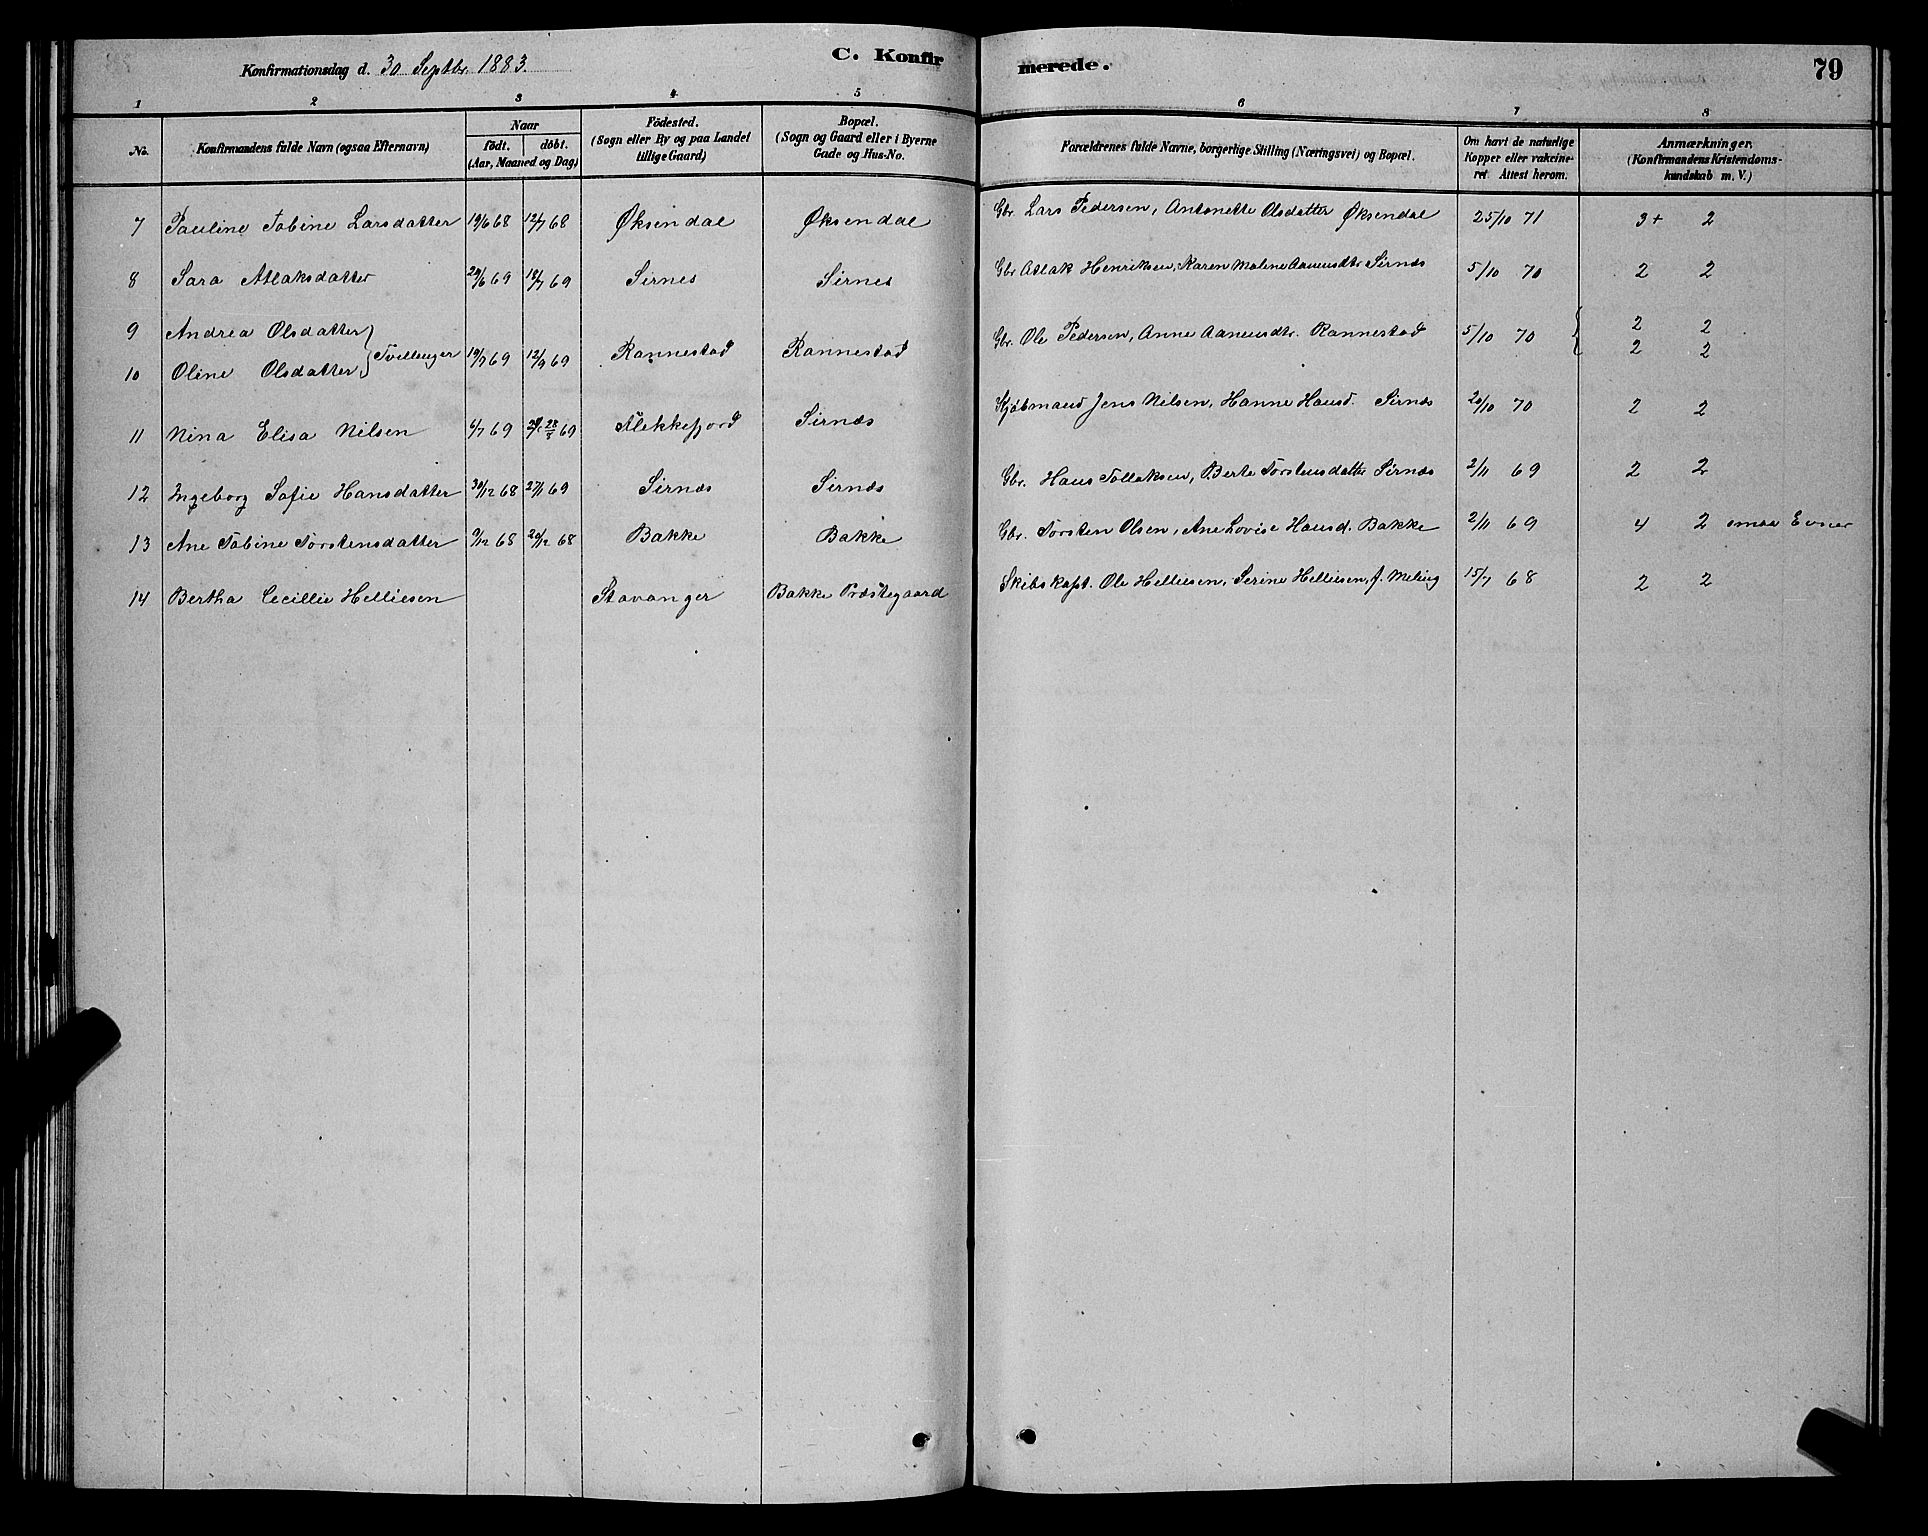 Konfirmationsdag d. 30 Septbr. 1883.
C. Konfirmerede.
79
1 2 3 4 5 6 7 8
No. Konfirmandens fulde Navn (ogsaa Efternavn) Naar födt. döbt. (Aar, Maaned og Dag) Födested. (Sogn eller By og paa Landet tillige Gaard) Bopæl. (Sogn og Gaard eller i Byerne Gade og Hus-No. Forældrenes fulde Navne, borgerlige Stilling (Næringsvei) og Bopæl. Om havt de naturlige Kopper eller vakcineret Attest herom. Anmærkninger. (Konfirmandens Kristendomskundskab m. V.)
7 Pauline Tobine Larsdatter 19/6 68 12/7 68 Øksendal Øksendal Gbr. Lars Pedersen, Antonette Olsdatter Øksendal 25/10 71 3+ 2
8 Sara Atlaksdatter 20/6 69 18/7 69 Sirnes Sirnes Gbr Atlak Henriksen, Karen Malene Aanensdtr Sirnæs 5/10 70 2 2
9 Andrea Olsdatter 2 2
Tvillinger 19/7 69 12/9 69 Rannestad Rannestad Gbr. Ole Pedersen, Anne Aanensdtr. Rannestad 5/10 70
10 Oline Olsdatter 2 2
11 Nina Elisa Nilsen 6/7 69 28/8 69 Flekkefjord Sirnæs Kjöbmand Jens Nilsen, Hanne Hansd. Sirnæs 20/10 70 2 2
12 Ingeborg Sofie Hansdatter 30/12 68 27/1 69 Sirnæs Sirnæs Gbr. Hans Tollaksen, Berte Torstensdatter Sirnæs 2/11 69 2 2
13 Ane Tobine Torstensdatter 9/12 68 20/12 68 Bakke Bakke Gbr. Torsten Olsen, Ane Lovise Hansd. Bakke 2/11 69 4 2 smaa Evner
14 Bertha Cecillie Helliesen Stavanger Bakke Præstegaard Skibskapt. Ole Helliesen, Serine Helliesen, f. Meling 15/7 68 2 2